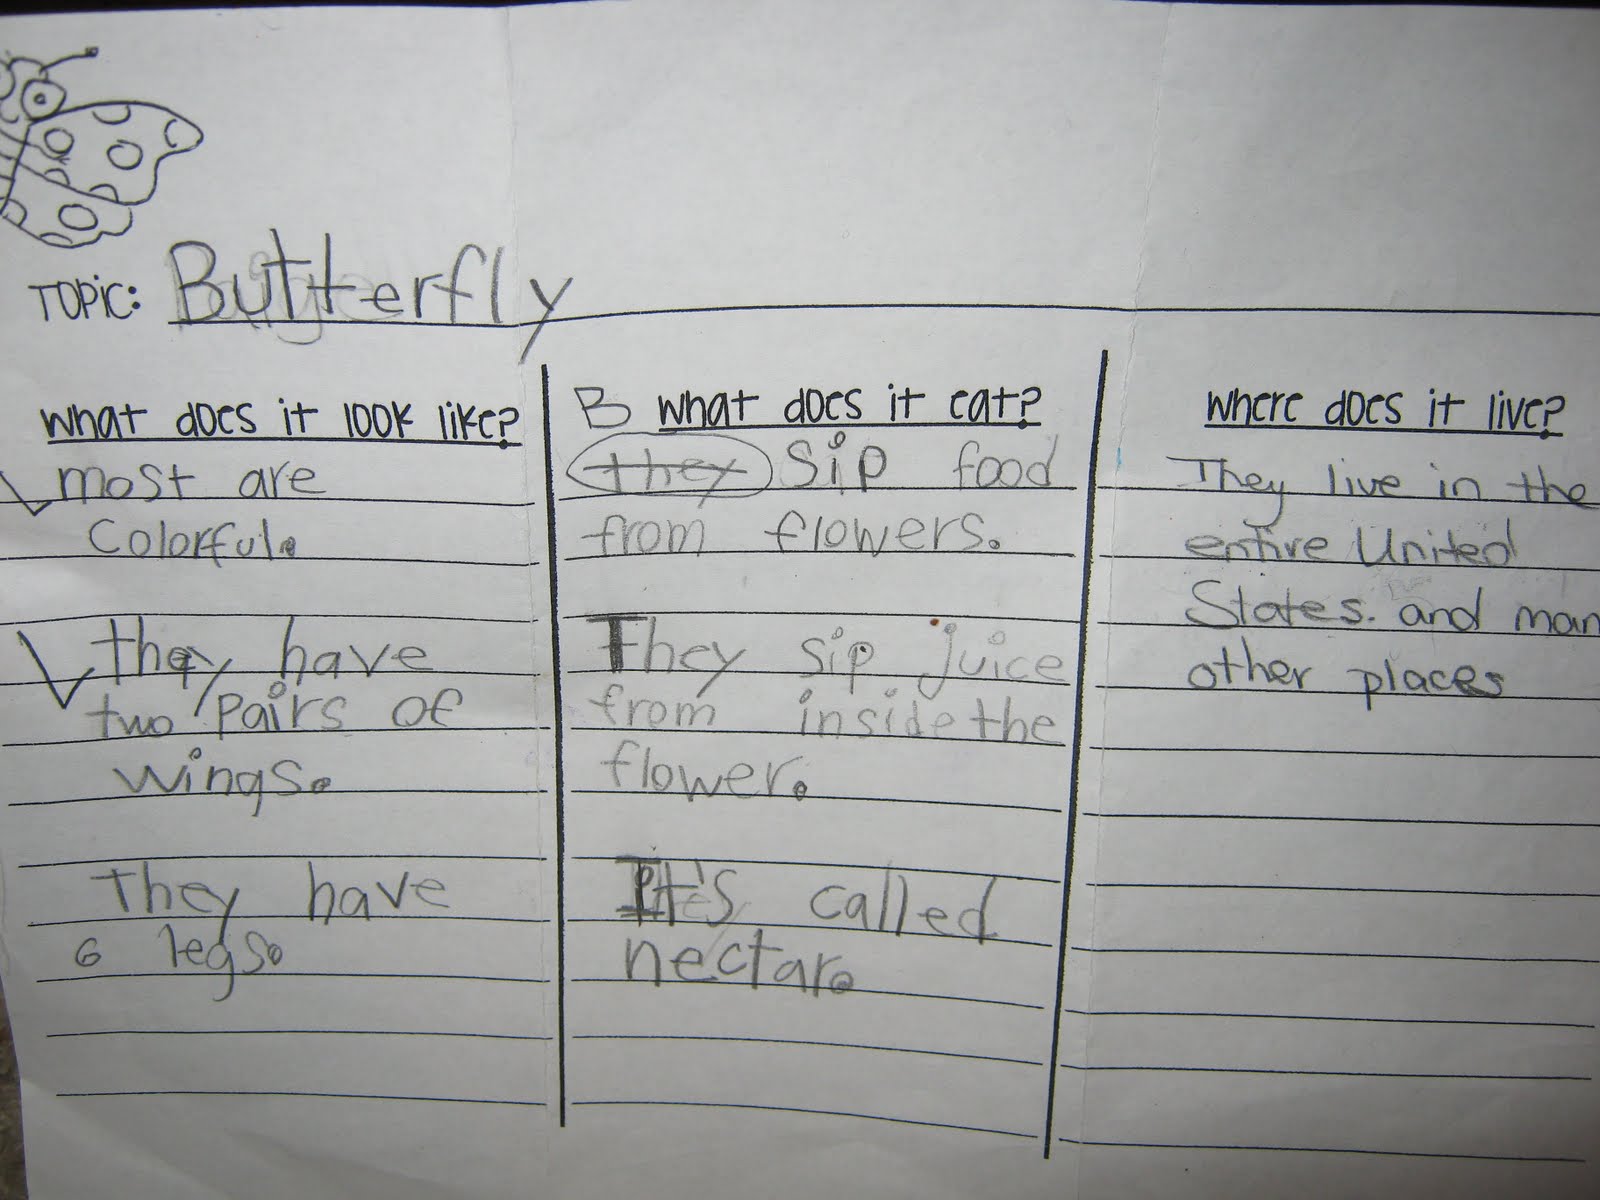 TOPIC: Butterfly
What does it look like?
most are
Colorful.
they have
two pairs of
wings.
They have
6 legs.
B What does it eat?
they Sip food
from flowers.
They sip juice
from inside the
flower.
It's called
nectar.
Where does it live?
They live in the
entire United
States. and man
other places